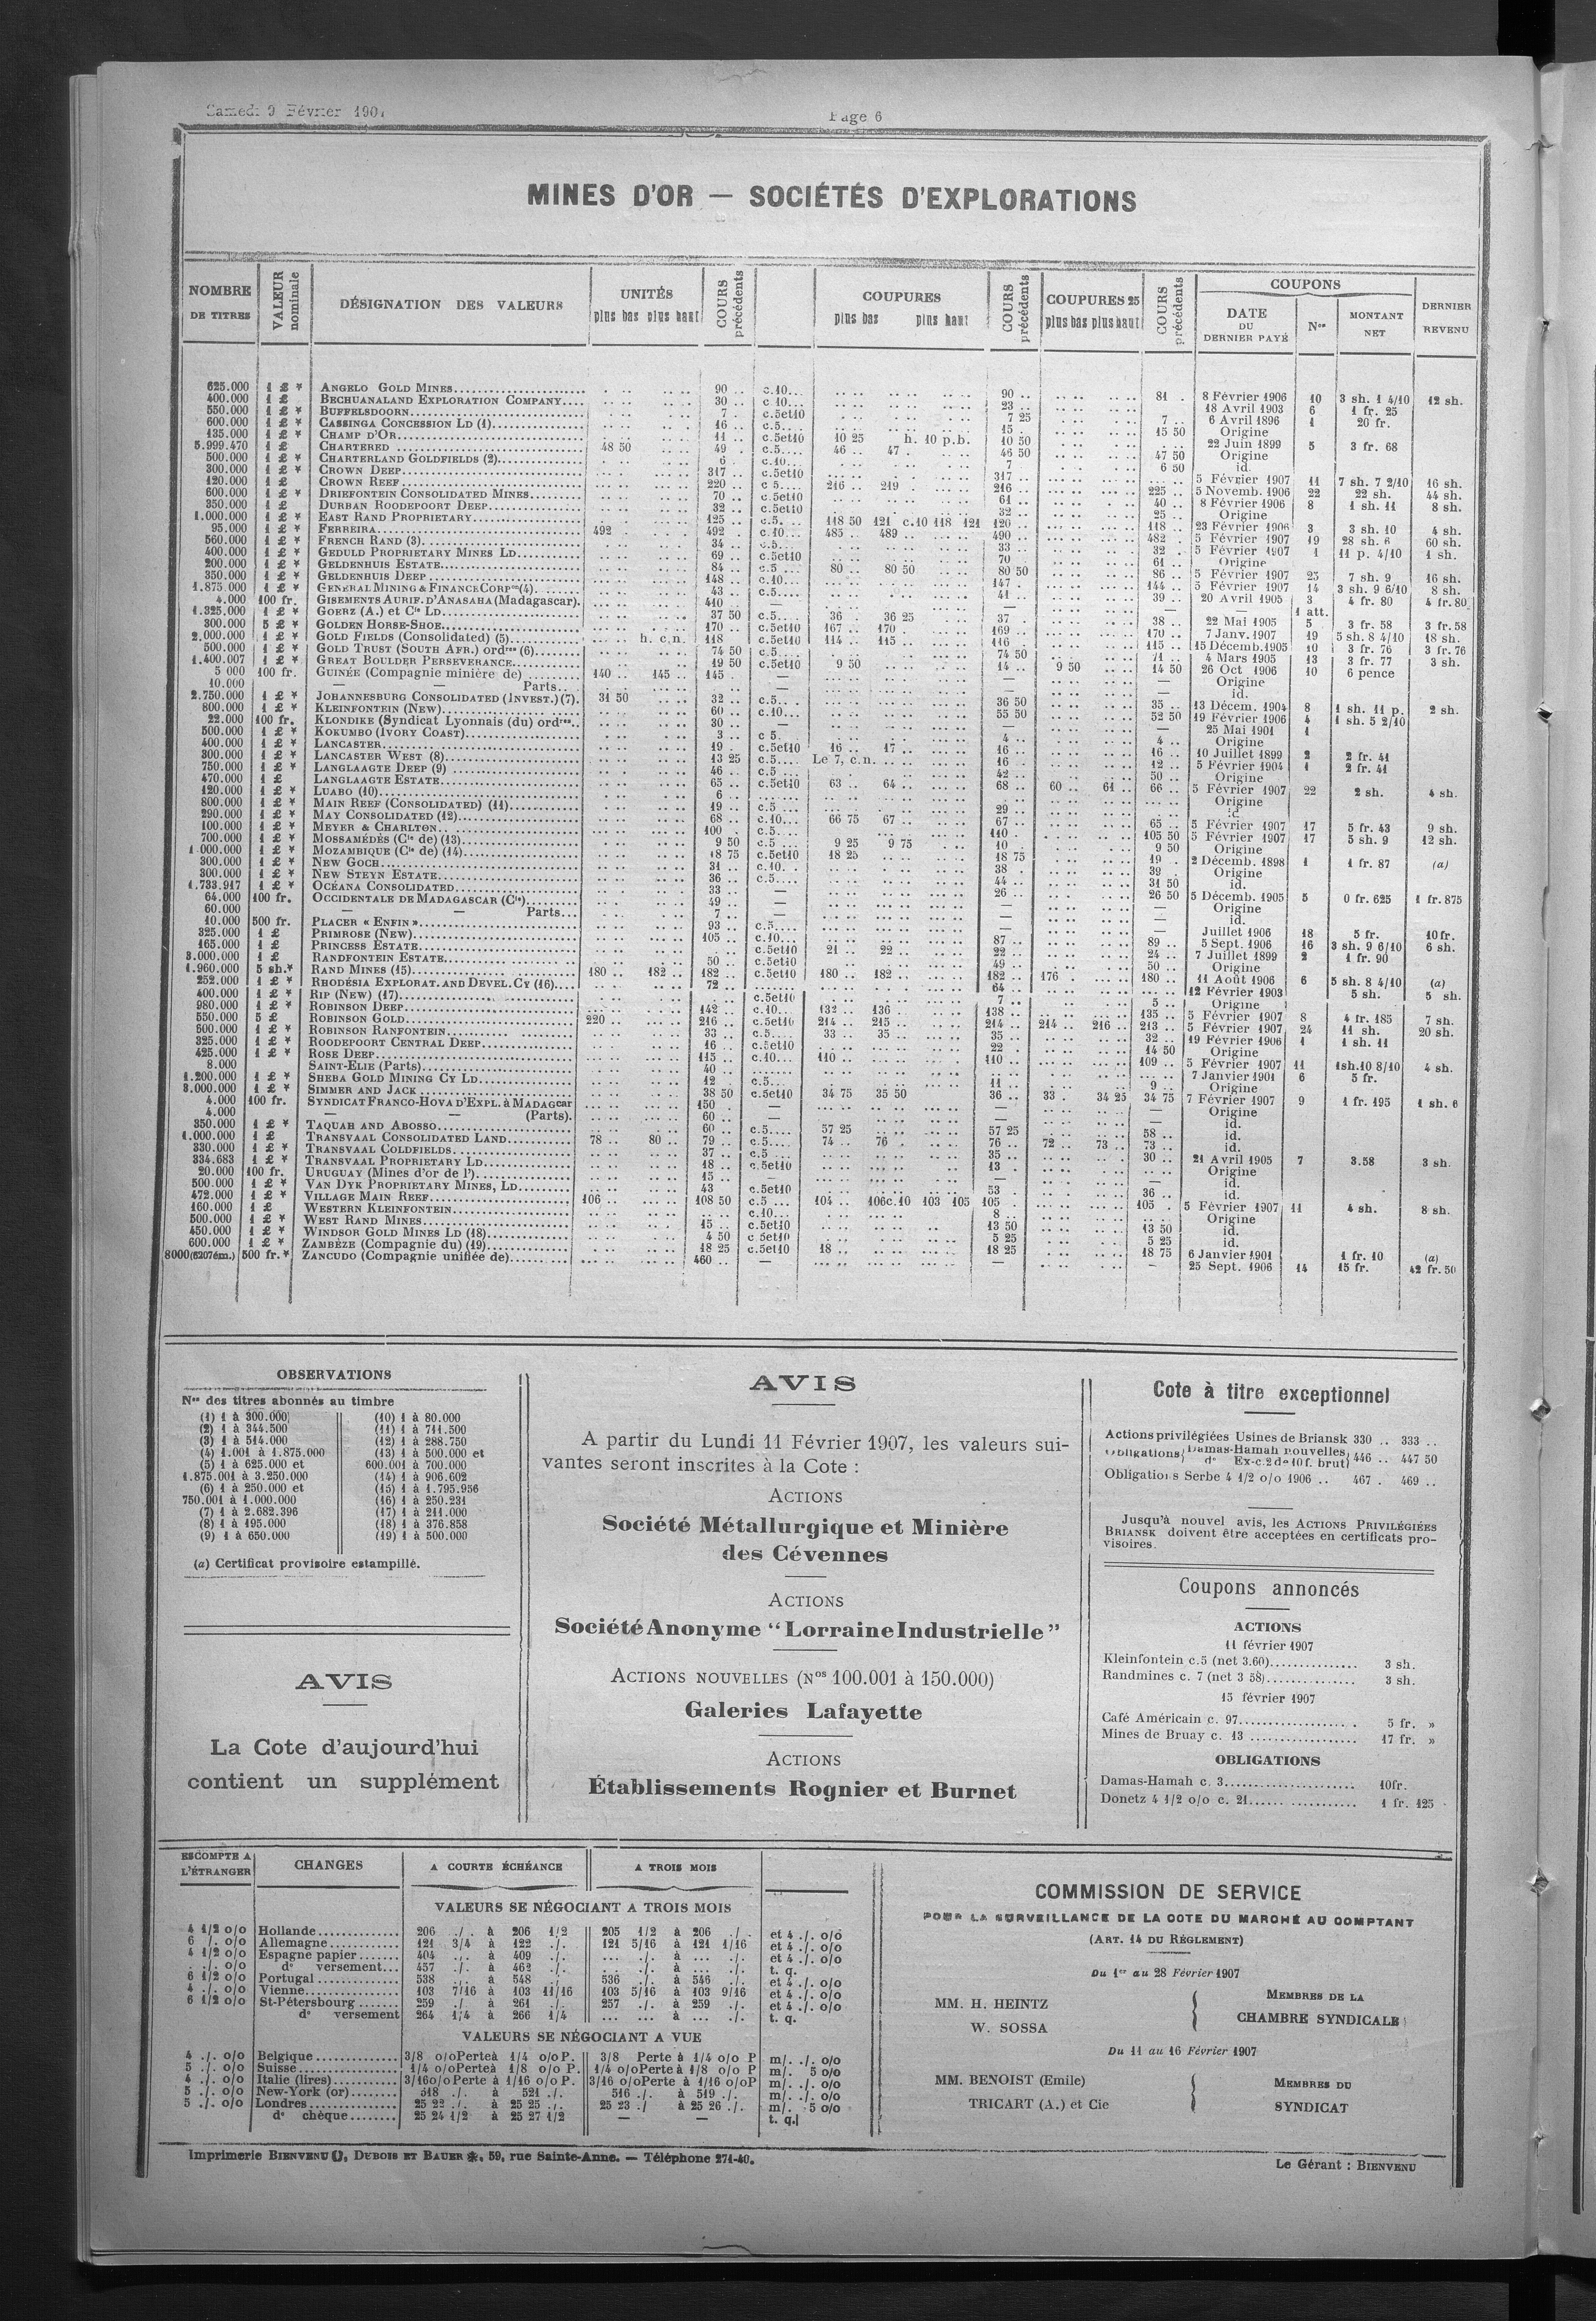 Samedi 9 Février 190
Page 6
MINES D'OR — SOCIÉTÉS D'EXPLORATIONS
NOMBRE DE TITRES | VALEUR nominale | DÉSIGNATION DES VALEURS | UNITÉS plus bas plus haut | COURS précédents | | COUPURES plus bas plus haut | COURS précédents | COUPURES 25 plus bas plus haut | COURS précédents | COUPONS DATE DU DERNIER PAYÉ | Nos | MONTANT NET | DERNIER REVENU
625.000 1 £ * ANGELO GOLD MINES 90 .. c.10... 90 .. 81 . 8 Février 1906 10 3 sh. 1 4/10 12 sh.
400.000 1 £ BECHUANALAND EXPLORATION COMPANY 30 .. c.10... 23 .. 18 Avril 1903 6 1 fr. 25
550.000 1 £ * BUFFELSDOORN 7 . c.5et10 7 25 7 .. 6 Avril 1896 1 20 fr.
600.000 1 £ * CASSINGA CONCESSION LD (1) 16 .. c.5.... 15 . 15 50 Origine
135.000 1 £ * CHAMP D'OR 11 .. c.5et10 10 25 h. 10 p.b. 10 50 22 Juin 1899 5 3 fr. 68
5.999.470 1 £ CHARTERED 48 50 49 . c.5.... 46 .. 47 . 46 50 47 50 Origine
500.000 1 £ * CHARTERLAND GOLDFIELDS (2) 6 . c.10... 7 6 50 id.
300.000 1 £ * CROWN DEEP 317 .. c.5et10 317 .. 5 Février 1907 11 7 sh. 7 2/10 16 sh.
120.000 1 £ CROWN REEF 220 .. c 5.... 216 .. 219 . 216 .. 225 .. 5 Novemb. 1906 22 22 sh. 44 sh.
600.000 1 £ * DRIEFONTEIN CONSOLIDATED MINES 70 .. c.5et10 61 .. 40 .. 8 Février 1906 8 1 sh. 11 8 sh.
350.000 1 £ DURBAN ROODEPOORT DEEP 32 .. c.5et10 32 .. 25 .. Origine
1.000.000 1 £ * EAST RAND PROPRIETARY 125 .. c.5. 118 50 121 c.10 118 121 120 .. 118 .. 23 Février 1906 3 3 sh. 10 4 sh.
95.000 1 £ * FERREIRA 492 .. 492 . c.10... 485 .. 489 .. 490 .. 482 . 5 Février 1907 19 28 sh. 6 60 sh.
560.000 1 £ * FRENCH RAND (3) 34 .. c.5... 33 .. 32 . 5 Février 1907 1 11 p. 4/10 1 sh.
400.000 1 £ * GEDULD PROPRIETARY MINES LD 69 .. c.5et10 70 .. 61 .. Origine
200.000 1 £ * GELDENHUIS ESTATE 84 .. c.5 ... 80 .. 80 50 80 50 86 .. 5 Février 1907 25 7 sh. 9 16 sh.
350.000 1 £ * GELDENHUIS DEEP 148 .. c.10... 147 . 144 .. 5 Février 1907 14 3 sh. 9 6/10 8 sh.
1.875.000 1 £ * GENERAL MINING & FINANCE CORPon(4) 43 .. c.5.... 41 .. 39 .. 20 Avril 1905 3 4 fr. 80 4 fr.80
4.000 100 fr. GISEMENTS AURIF. D'ANASAHA (Madagascar). 410 .. — — — — 1 att.
1.325.000 1 £ * GOERZ (A.) et Cie LD 37 50 c.5.... 36 . 36 25 37 . 38 .. 22 Mai 1905 5 3 fr. 58 3 fr.58
300.000 5 £ * GOLDEN HORSE-SHOE 170 .. c.5et10 167 .. 170 .. 169 .. 170 .. 7 Janv. 1907 19 5 sh. 8 4/10 18 sh.
2.000.000 1 £ * GOLD FIELDS (Consolidated) (5) h. c.n. 118 c.5et10 114 .. 115 .. 116 .. 115 .. 15 Décemb.1905 10 3 fr. 76 3 fr.76
500.000 1 £ * GOLD TRUST (SOUTH AFR.) ordres (6) 74 50 c.5.... 74 50 71 .. 4 Mars 1905 13 3 fr. 77 3 sh.
1.400.007 1 £ * GREAT BOULDER PERSEVERANCE 19 50 c.5et10 9 50 14 .. 9 50 14 50 26 Oct 1906 10 6 pence
5 000 100 fr. GUINÉE (Compagnie minière de) 140 .. 145 .. 145 . — — — Origine
10.000 — — Parts... — — — id.
2.750.000 1 £ * JOHANNESBURG CONSOLIDATED (INVEST.) (7). 31 50 32 .. c.5... 36 50 35 .. 13 Décem. 1904 8 1 sh. 11 p. 2 sh.
800.000 1 £ * KLEINFONTEIN (NEW) 60 .. c.10... 55 50 52 50 19 Février 1906 4 1 sh. 5 2/10
22.000 100 fr. KLONDIKE (Syndicat Lyonnais (du) ordres 30 .. — — — 25 Mai 1901 1
500.000 1 £ * KOKUMBO (IVORY COAST) 3 .. c 5. 4 .. 4 .. Origine
400.000 1 £ * LANCASTER 19 . c.5et10 16 .. 17 . 16 .. 16 .. 10 Juillet 1899 2 2 fr. 41
300.000 1 £ * LANCASTER WEST (8) 13 25 c.5.... Le 7, c.n. 16 . 12 .. 5 Février 1904 1 2 fr. 41
750.000 1 £ * LANGLAAGTE DEEP (9) 46 .. c.5 ... 42 .. 50 .. Origine
470.000 1 £ LANGLAAGTE ESTATE 65 .. c.5et10 63 .. 64 .. 68 .. 60 .. 61 .. 66 .. 5 Février 1907 22 2 sh. 4 sh.
120.000 1 £ * LUABO (10) 6 .. Origine
800.000 1 £ * MAIN REEF (CONSOLIDATED) (11) 19 .. c.5 ... 29 .. id
290.000 1 £ * MAY CONSOLIDATED (12) 68 .. c.10... 66 75 67 .. 67 .. 65 .. 5 Février 1907 17 5 fr. 43 9 sh.
100.000 1 £ * MEYER & CHARLTON 100 . c.5.... 110 . 105 50 5 Février 1907 17 5 sh. 9 12 sh.
700.000 1 £ * MOSSAMÉDÈS (Cie de) (13) 9 50 c.5 ... 9 25 9 75 10 . 9 50 Origine
1 000.000 1 £ * MOZAMBIQUE (Cie de) (14) 18 75 c.5et10 18 25 18 75 19 . 2 Décemb. 1898 1 1 fr. 87 (a)
300.000 1 £ * NEW GOCH 31 .. c.10. . 38 . 39 . Origine
300.000 1 £ * NEW STEYN ESTATE 36 .. c.5.... 44 .. 31 50 id.
1.733.917 1 £ * OCÉANA CONSOLIDATED 33 .. — 26 .. 26 50 5 Décemb. 1905 5 0 fr. 625 1 fr.875
64.000 100 fr. OCCIDENTALE DE MADAGASCAR (Cie) 49 .. — — — Origine
60.000 — — Parts... 7 .. — — — id.
10.000 500 fr. PLACER « ENFIN » 93 .. c.5.... — Juillet 1906 18 5 fr. 10fr.
325.000 1 £ PRIMROSE (NEW) 105 .. c.10... 87 .. 89 .. 5 Sept. 1906 16 3 sh. 9 6/10 6 sh.
165.000 1 £ PRINCESS ESTATE c.5et10 21 .. 22 .. 22 .. 24 .. 7 Juillet 1899 2 1 fr. 90
3.000.000 1 £ RANDFONTEIN ESTATE 50 .. c.5et10 49 .. 50 .. Origine
1.960.000 5 sh.* RAND MINES (15) 180 .. 182 .. 182 .. c.5et10 180 .. 182 .. 182 .. 176 . 180 .. 11 Août 1906 6 5 sh. 8 4/10 (a)
252.000 1 £ * RHODÉSIA EXPLORAT. AND DEVEL. CY (16) 72 .. 64 .. 12 Février 1903 5 sh. 5 sh.
400.000 1 £ * RIP (NEW) (17) c.5et10 7 .. 5 .. Origine
980.000 1 £ * ROBINSON DEEP 142 .. c.10... 132 .. 136 .. 138 .. 135 .. 5 Février 1907 8 4 fr. 185 7 sh.
550.000 5 £ ROBINSON GOLD 220 .. 216 .. c.5et10 214 .. 215 .. 214 .. 214 .. 216 .. 213 .. 5 Février 1907 24 11 sh. 20 sh.
600.000 1 £ * ROBINSON RANFONTEIN 33 .. c.5.... 33 .. 35 .. 35 .. 32 .. 19 Février 1906 1 1 sh. 11
325.000 1 £ * ROODEPOORT CENTRAL DEEP 16 .. c.5et10 22 . 14 50 Origine
425.000 1 £ * ROSE DEEP 115 .. c.10... 110 .. 110 .. 109 .. 5 Février 1907 11 1sh.10 8/10 4 sh.
8.000 SAINT-ELIE (Parts) 40 .. 7 Janvier 1901 6 5 fr.
1.200.000 1 £ * SHEBA GOLD MINING CY LD 12 . c.5... 11 .. 9 .. Origine
3.000.000 1 £ * SIMMER AND JACK 38 50 c.5et10 34 75 35 50 36 .. 33 . 34 25 34 75 7 Février 1907 9 1 fr. 195 1 sh. 6
4.000 100 fr. SYNDICAT FRANCO-HOVA D'EXPL. à MADAGascar 150 . — — — Origine
4.000 — — (Parts). 60 .. — — — id.
350.000 1 £ * TAQUAH AND ABOSSO 60 .. c.5.... 57 25 57 25 58 .. id.
1.000.000 1 £ TRANSVAAL CONSOLIDATED LAND 78 .. 80 .. 79 .. c.5.... 74 .. 76 . 76 .. 72 .. 73 .. 73 .. id.
330.000 1 £ * TRANSVAAL COLDFIELDS 37 .. c.5 ... 35 .. 30 .. 21 Avril 1905 7 3.58 3 sh.
334.683 1 £ * TRANSVAAL PROPRIETARY LD 18 .. c.5et10 13 . Origine
20.000 100 fr. URUGUAY (Mines d'or de l') 15 .. — — id.
500.000 1 £ * VAN DYK PROPRIETARY MINES, LD 43 c.5et10 53 . 36 .. id.
472.000 1 £ * VILLAGE MAIN REEF 106 .. 108 50 c.5 ... 104 .. 106c.10 103 105 105 . 105 . 5 Février 1907 11 4 sh. 8 sh.
160.000 1 £ WESTERN KLEINFONTEIN c.10... 8 .. Origine
500.000 1 £ * WEST RAND MINES 15 .. c.5et10 13 50 13 50 id.
450.000 1 £ * WINDSOR GOLD MINES LD (18) 4 50 c 5et10 5 25 5 25 id.
600.000 1 £ * ZAMBÈZE (Compagnie du) (19) 18 25 c.5et10 18 .. 18 25 18 75 6 Janvier 1901 1 fr. 10 (a)
8000(6207ém.) 500 fr.* ZANCUDO (Compagnie unifiée de) 460 .. — — — 25 Sept. 1906 14 15 fr. 42 fr. 50
OBSERVATIONS
Nos des titres abonnés au timbre
(1) 1 à 300.000
(2) 1 à 344.500
(3) 1 à 514.000
(4) 1.001 à 1.875.000
(5) 1 à 625.000 et
1.875.001 à 3.250.000
(6) 1 à 250.000 et
750.001 à 1.000.000
(7) 1 à 2.682.396
(8) 1 à 195.000
(9) 1 à 650.000
(10) 1 à 80.000
(11) 1 à 711.500
(12) 1 à 288.750
(13) 1 à 500.000 et
600.001 à 700.000
(14) 1 à 906.602
(15) 1 à 1.795.956
(16) 1 à 250.231
(17) 1 à 211.000
(18) 1 à 376.858
(19) 1 à 500.000
(a) Certificat provisoire estampillé.
AVIS
La Cote d'aujourd'hui
contient un supplément
AVIS
A partir du Lundi 11 Février 1907, les valeurs sui-
vantes seront inscrites à la Cote :
ACTIONS
Société Métallurgique et Minière
des Cévennes
ACTIONS
Société Anonyme “Lorraine Industrielle”
ACTIONS NOUVELLES (Nos 100.001 à 150.000)
Galeries Lafayette
ACTIONS
Établissements Rognier et Burnet
Cote à titre exceptionnel
Actions privilégiées Usines de Briansk 330 .. 333 ..
Obligations Damas-Hamah nouvelles
do Ex-c.2 de 10 f. brut 446 .. 447 50
Obligations Serbe 4 1/2 o/o 1906 .. 467 . 469 ..
Jusqu'à nouvel avis, les ACTIONS PRIVILÉGIÉES
BRIANSK doivent être acceptées en certificats pro-
visoires.
Coupons annoncés
ACTIONS
11 février 1907
Kleinfontein c.5 (net 3.60) 3 sh.
Randmines c. 7 (net 3 58) 3 sh.
15 février 1907
Café Américain c. 97 5 fr. »
Mines de Bruay c. 13 17 fr. »
OBLIGATIONS
Damas-Hamah c. 3 10fr.
Donetz 4 1/2 o/o c. 21 1 fr. 125
ESCOMPTE A L'ÉTRANGER | CHANGES | A COURTE ÉCHÉANCE | A TROIS MOIS
VALEURS SE NÉGOCIANT A TROIS MOIS
4 1/2 o/o Hollande 206 ./. à 206 1/2 205 1/2 à 206 ./. et 4 ./. o/o
6 ./. o/o Allemagne 121 3/4 à 122 ./. 121 5/16 à 121 1/16 et 4 ./. o/o
4 1/2 o/o Espagne papier 404 ... à 409 ./. ... ./. à ... ./. et 4 ./. o/o
. ./. o/o do versement... 457 ./. à 462 ./. ... ./. à ... ./. t. q.
6 1/2 o/o Portugal 538 ... à 548 ./. 536 ./. à 546 ./. et 4 ./. o/o
4 ./. o/o Vienne 103 7/16 à 103 11/16 103 5/16 à 103 9/16 et 4 ./. o/o
6 1/2 o/o St-Pétersbourg 259 ./. à 261 ./. 257 ./. à 259 ./. et 4 ./. o/o
do versement 264 1/4 à 266 1/4 ... ... à ... ./. t. q.
VALEURS SE NÉGOCIANT A VUE
4 ./. o/o Belgique 3/8 o/o Perte à 1/4 o/o P. 3/8 Perte à 1/4 o/o P m/. ./. o/o
5 ./. o/o Suisse 1/4 o/o Perte à 1/8 o/o P. 1/4 o/o Perte à 1/8 o/o P m/. 5 o/o
4 ./. o/o Italie (lires) 3/16 o/o Perte à 1/16 o/o P. 3/16 o/o Perte à 1/16 o/o P m/. ./. o/o
5 ./. o/o New-York (or) 518 ./. à 521 ./. 516 ./. à 519 ./. m/. ./. o/o
5 ./. o/o Londres 25 22 ./. à 25 25 ./. 25 23 ./ à 25 26 ./. m/. 5 o/o
do chèque 25 24 1/2 à 25 27 1/2 — — t. q.
COMMISSION DE SERVICE
POUR LA SURVEILLANCE DE LA COTE DU MARCHÉ AU COMPTANT
(ART. 14 DU RÈGLEMENT)
Du 1er au 28 Février 1907
MM. H. HEINTZ
W. SOSSA
MEMBRES DE LA
CHAMBRE SYNDICALE
Du 11 au 16 Février 1907
MM. BENOIST (Emile)
TRICART (A.) et Cie
MEMBRES DU
SYNDICAT
Imprimerie BIENVENU, DUBOIS ET BAUER, 59, rue Sainte-Anne. — Téléphone 271-40.
Le Gérant : BIENVENU